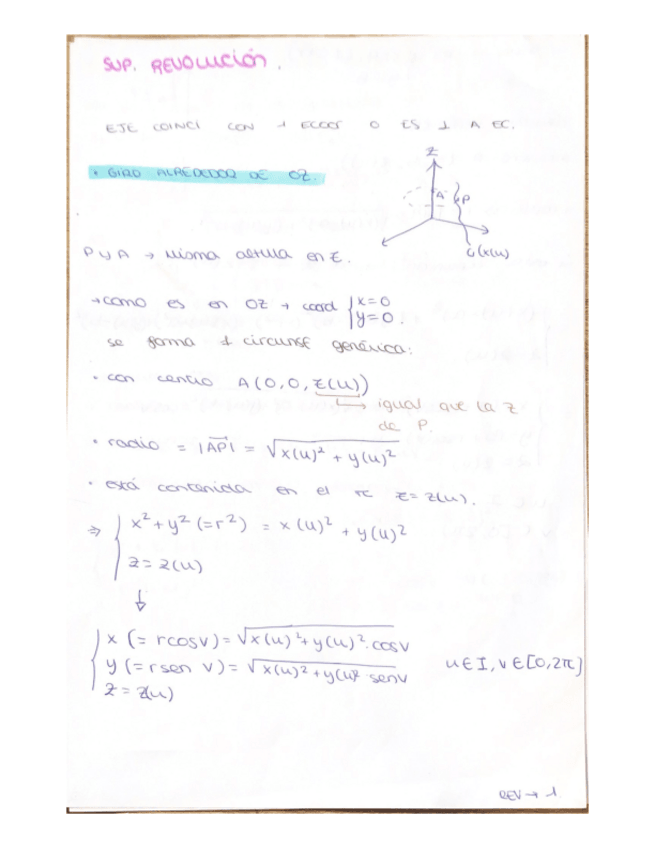 SUP. REVOLUCIÓN.
EJE COINCI CON 1 ECOOR O ES ⊥ A EC.
• GIRO ALREDEDOR DE OZ.
Z
A
P
C(x(u))
P y A → misma altura en Z.
→ como es en OZ → coord { x=0
y=0.
se forma 1 circunsf genérica:
• con centro A(0,0,z(u))
→ igual que la z
de P.
• radio = |AP| = √x(u)² + y(u)²
• está contenida en el z = z(u).
⇒ { x² + y² (=r²) = x(u)² + y(u)²
z = z(u)
↓
{ x (= rcosv) = √x(u)² + y(u)² · cosv
y (= rsen v) = √x(u)² + y(u)² · senv
u ∈ I, v ∈ [0, 2π]
z = z(u)
REV → 1